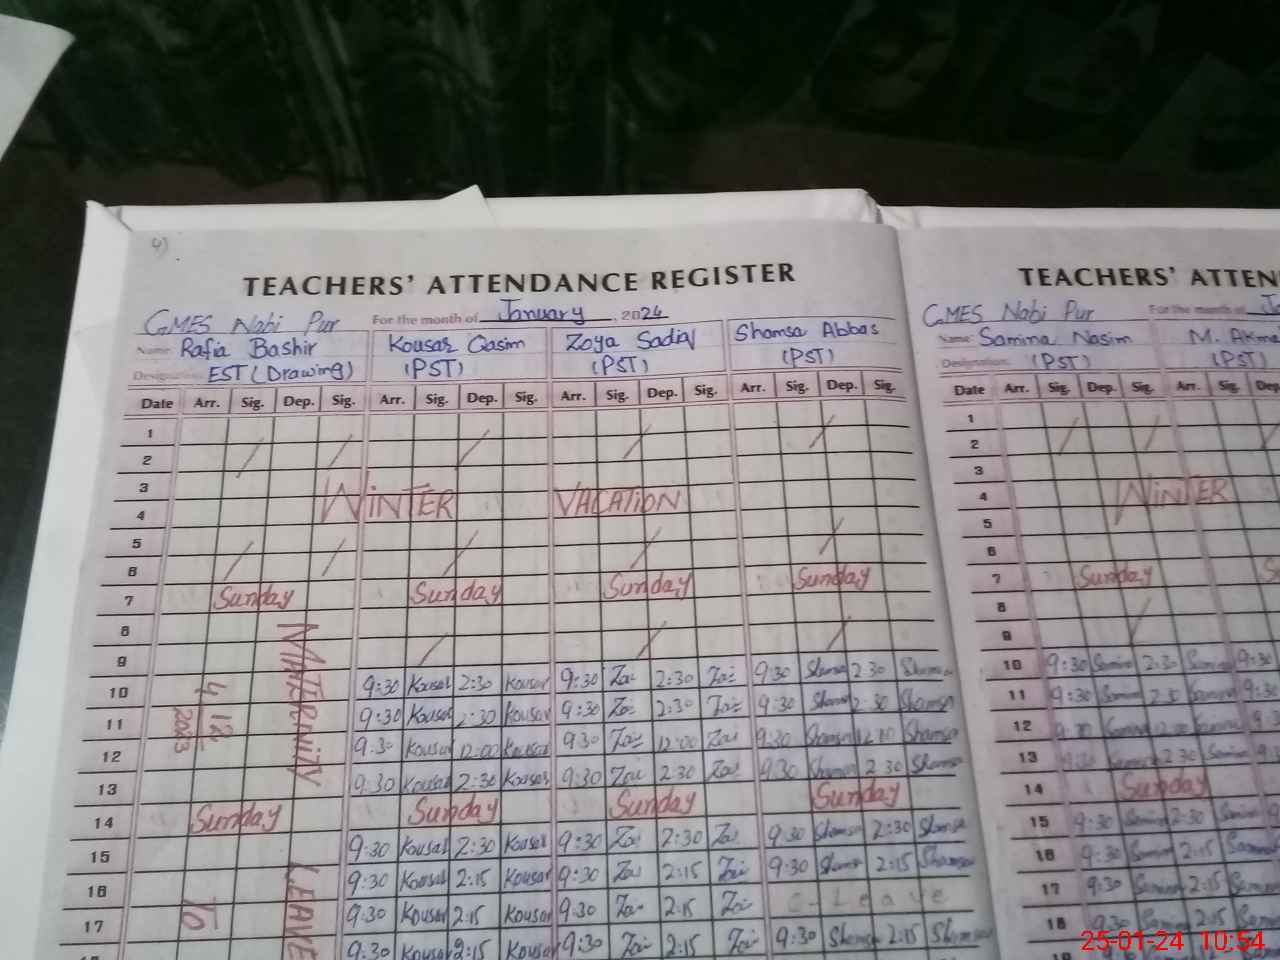 4)
TEACHERS' ATTENDANCE REGISTER
GMES Nabi Pur For the month of January, 2024
Name: Rafia Bashir Kousar Qasim Zoya Sadiq Shamsa Abbas
Designation: EST (Drawing) (PST) (PST) (PST)
Date Arr. Sig. Dep. Sig. Arr. Sig. Dep. Sig. Arr. Sig. Dep. Sig. Arr. Sig. Dep. Sig.
1
2
3
WINTER VACATION
4
5
6
7 Sunday Sunday Sunday Sunday
8
9
MATERNITY
10 9:30 Kousar 2:30 Kousar 9:30 Zoi 2:30 Zoi 9:30 Shamsa 2:30 Shamsa
4/12/2023
11 9:30 Kousar 2:30 Kousar 9:30 Zoi 2:30 Zoi 9:30 Shamsa 2:30 Shamsa
12 9:30 Kousar 12:00 Kousar 9:30 Zoi 12:00 Zoi 9:30 Shamsa 12:00 Shamsa
13 9:30 Kousar 2:30 Kousar 9:30 Zoi 2:30 Zoi 9:30 Shamsa 2:30 Shamsa
14 Sunday Sunday Sunday Sunday
15 9:30 Kousar 2:30 Kousar 9:30 Zoi 2:30 Zoi 9:30 Shamsa 2:30 Shamsa
LEAVE
16 9:30 Kousar 2:15 Kousar 9:30 Zoi 2:15 Zoi 9:30 Shamsa 2:15 Shamsa
TO
17 9:30 Kousar 2:15 Kousar 9:30 Zoi 2:15 Zoi C-Leave
9:30 Kousar 2:15 Kousar 9:30 Zoi 2:15 Zoi 9:30 Shamsa 2:15 Shamsa
TEACHERS' ATTEN
GMES Nabi Pur For the month of
Name: Samina Nasim M. Akma
Designation: (PST) (PST)
Date Arr. Sig. Dep. Sig. Arr. Sig. Dep
1
2
3
4 WINTER
5
6
7 Sunday
8
9
10 9:30 Samina 2:30 Samina 9:30
11 9:30 Samina 2:30 Samina 9:30
12 9:30 Samina 12:00 Samina
13 9:30 Samina 2:30 Samina 9:30
14 Sunday
15 9:30 Samina 2:30 Samina
16 9:30 Samina 2:15 Samina
17 9:30 Samina 2:15 Samina
18 9:30 Samina 2:15 Samina
25-01-24 10:54